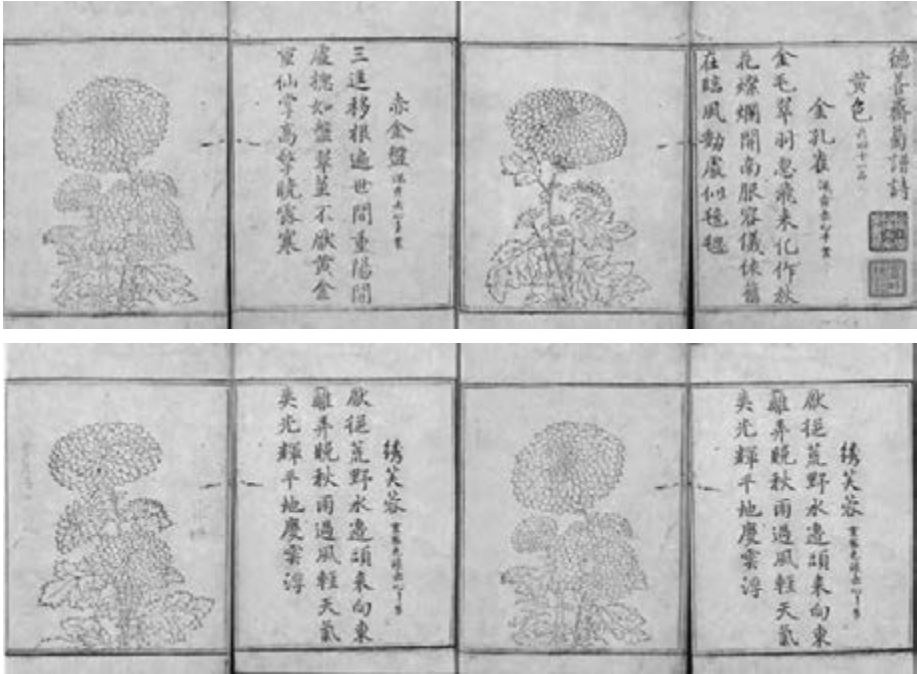 德善齋菊譜詩
黃色
金孔雀
金毛翠羽忽飛來化作秋
花燦爛開南服容儀依舊
在臨風動處似毰毸
赤金盤
三逕移根遍世間重陽開
處摠如盤翠莖不厭黃金
重仙掌高擎曉露寒
綉芙蓉
厭從荒野水邊頭來向東
籬弄晚秋雨過風輕天氣
爽光輝平地慶雲浮
綉芙蓉
厭從荒野水邊頭來向東
籬弄晚秋雨過風輕天氣
爽光輝平地慶雲浮